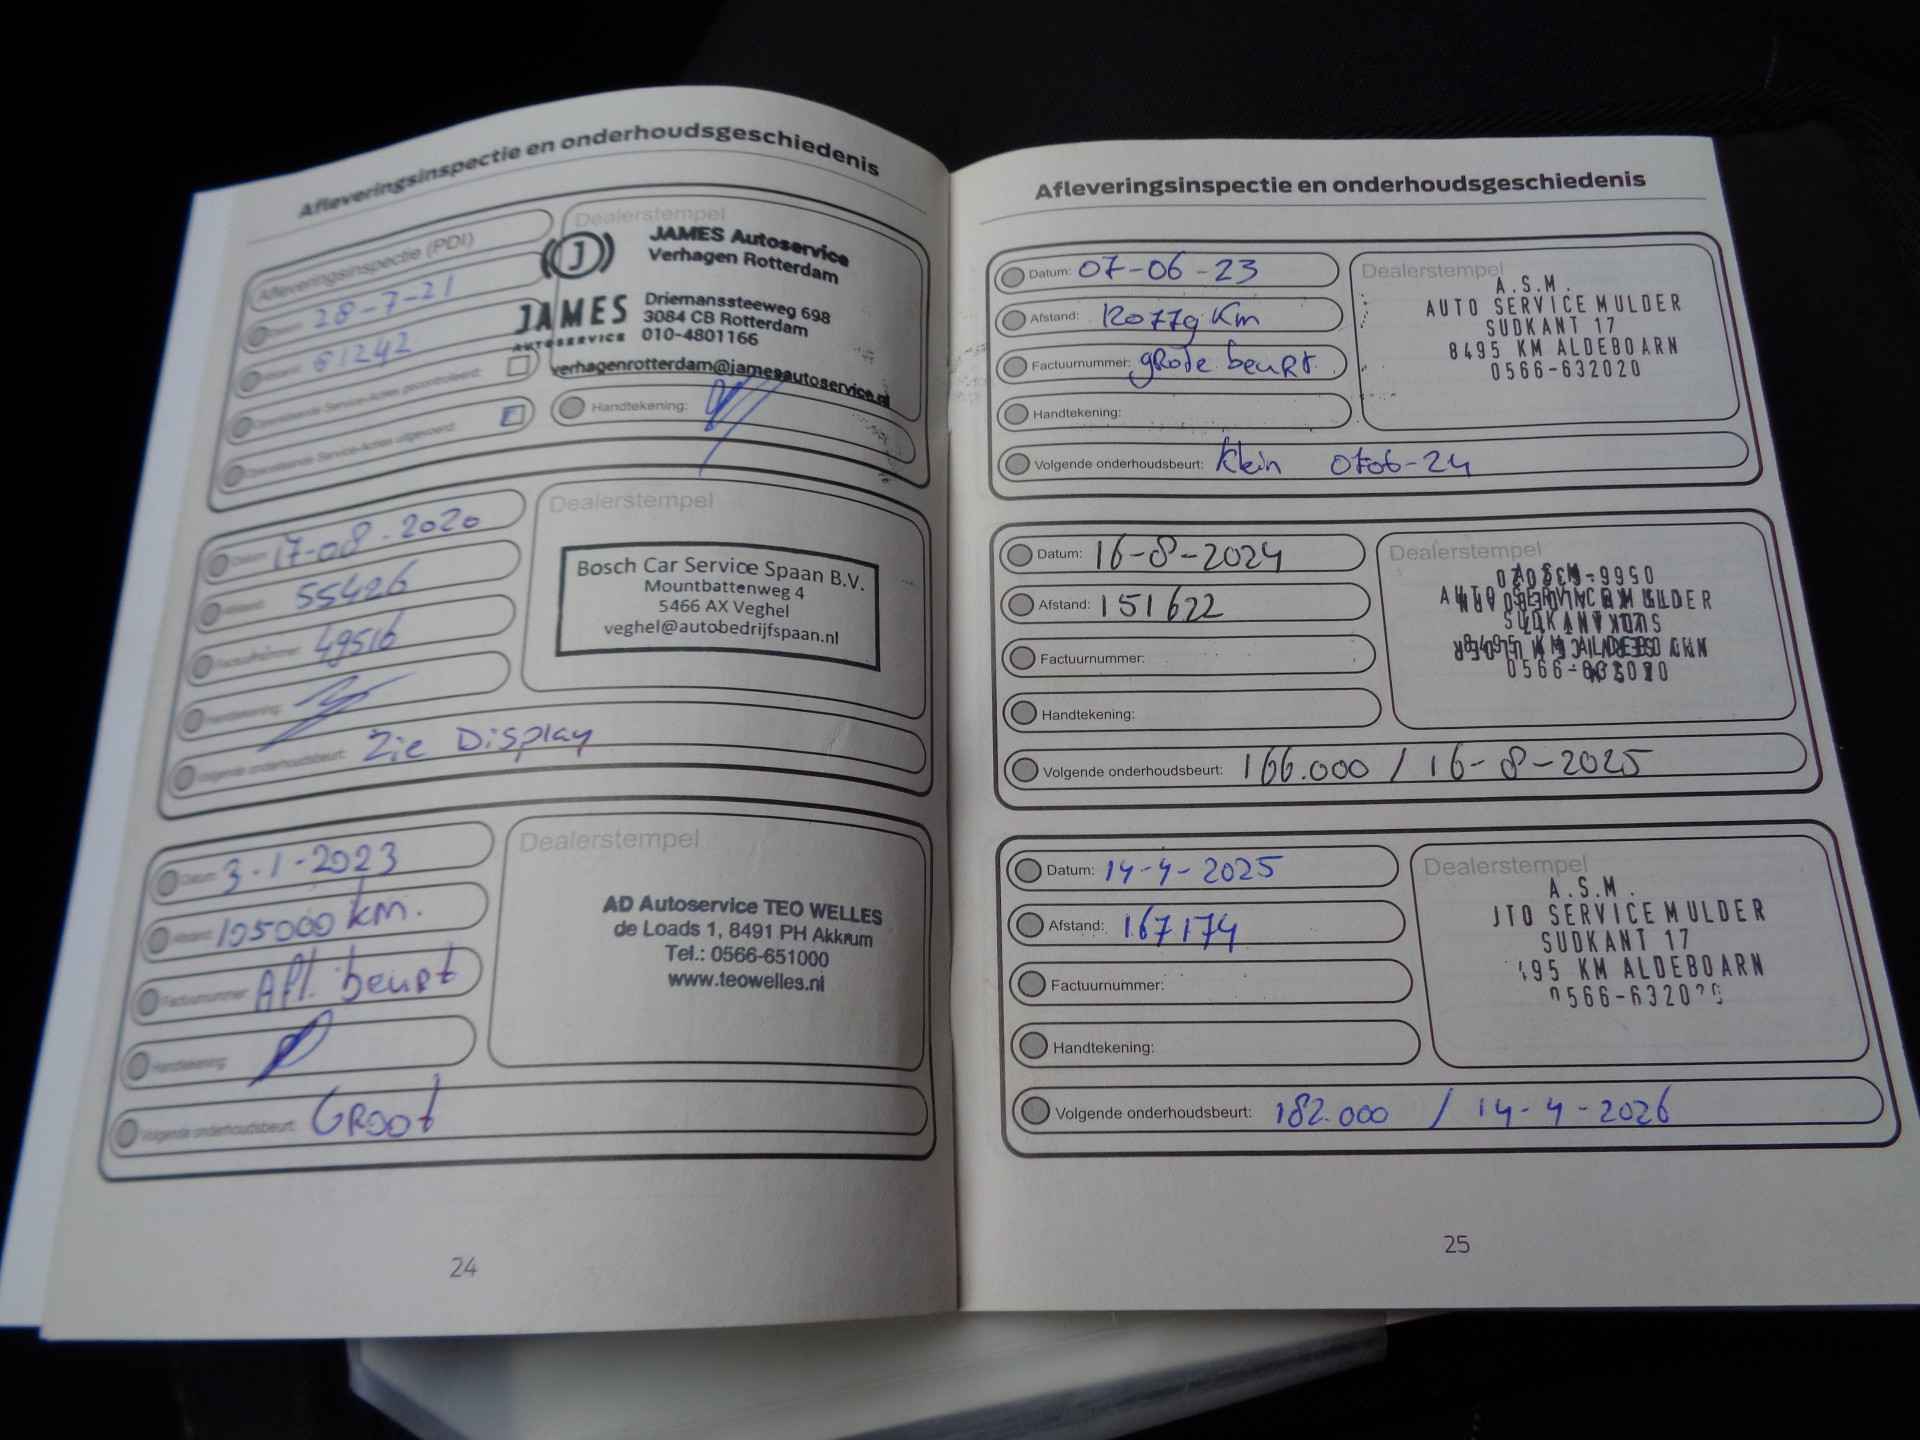 Afleveringsinspectie en onderhoudsgeschiedenis
Afleveringsinspectie (PDI)
28-7-21
81242
Openstaande Service-Acties gecontroleerd:
Openstaande Service-Acties uitgevoerd:
Dealerstempel
J
JAMES
AUTOSERVICE
JAMES Autoservice
Verhagen Rotterdam
Driemanssteeweg 698
3084 CB Rotterdam
010-4801166
verhagenrotterdam@jamesautoservice.nl
Handtekening:
Datum: 17-08-2020
Afstand: 55426
Factuurnummer: 49516
Handtekening:
Volgende onderhoudsbeurt: Zie Display
Dealerstempel
Bosch Car Service Spaan B.V.
Mountbattenweg 4
5466 AX Veghel
veghel@autobedrijfspaan.nl
Datum: 3-1-2023
Afstand: 105000 km.
Factuurnummer: Afl. beurt
Handtekening:
Volgende onderhoudsbeurt: GROOT
Dealerstempel
AD Autoservice TEO WELLES
de Loads 1, 8491 PH Akkrum
Tel.: 0566-651000
www.teowelles.nl
24
Afleveringsinspectie en onderhoudsgeschiedenis
Datum: 07-06-23
Afstand: 120779 Km
Factuurnummer: gRote beurt.
Handtekening:
Volgende onderhoudsbeurt: klein 0706-24
Dealerstempel
A.S.M.
AUTO SERVICE MULDER
SUDKANT 17
8495 KM ALDEBOARN
0566-632020
Datum: 16-8-2024
Afstand: 151622
Factuurnummer:
Handtekening:
Volgende onderhoudsbeurt: 166.000 / 16-8-2025
Dealerstempel
Datum: 14-4-2025
Afstand: 167174
Factuurnummer:
Handtekening:
Volgende onderhoudsbeurt: 182.000 / 14-4-2026
Dealerstempel
A.S.M.
JTO SERVICE MULDER
SUDKANT 17
495 KM ALDEBOARN
0566-632020
25